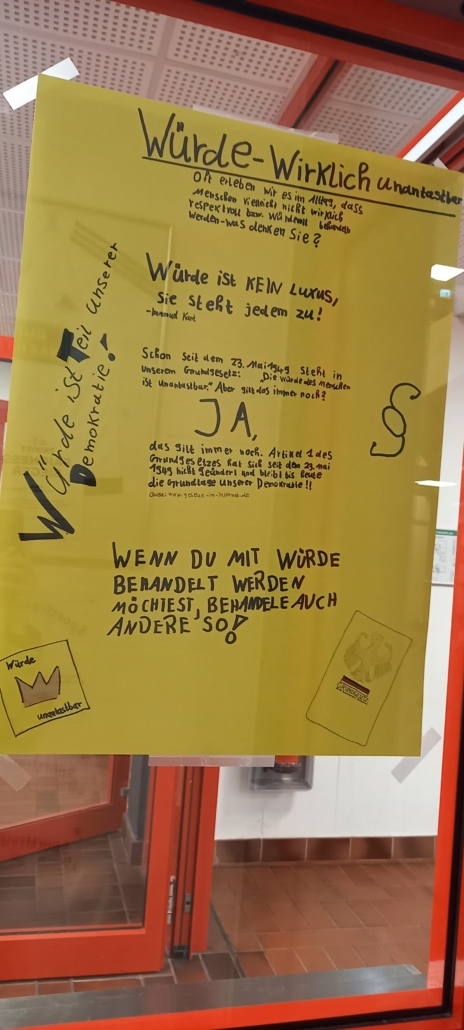 Würde-Wirklich unantastbar
Oft erleben wir es im Alltag, dass
Menschen vielleicht nicht wirklich
respektvoll bzw. würdevoll behandelt
werden-was denken Sie?
Würde ist KEIN Luxus,
sie steht jedem zu!
-Immanuel Kant
Würde ist Teil unserer
Demokratie!
Schon seit dem 23. Mai 1949 steht in
unserem Grundgesetz: „Die würde des menschen
ist unantastbar." Aber gilt das immer noch?
JA,
§
das gilt immer noch. Artikel 1 des
Grundgesetzes hat sich seit den 23. mai
1949 nicht geändert und bleibt bis heute
die Grundlage unserer Demokratie!!
WENN DU MIT WÜRDE
BEHANDELT WERDEN
MÖCHTEST, BEHANDELE AUCH
ANDERE SO!
Würde
unantastbar